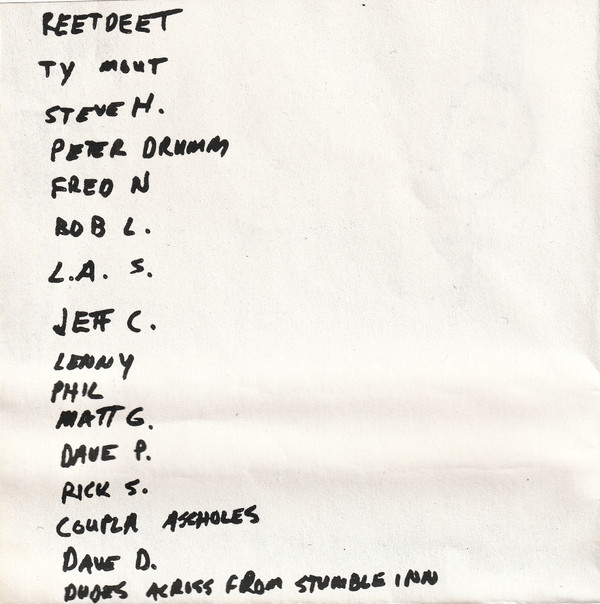 REETDEET
TY MOUT
STEVE H.
PETER DRUMM
FRED N
BOB L.
L.A. S.
JEFF C.
LENNY
PHIL
MATT G.
DAVE P.
RICK S.
COUPLA ASSHOLES
DAVE D.
DUDES ACRISS FROM STUMBLE INN